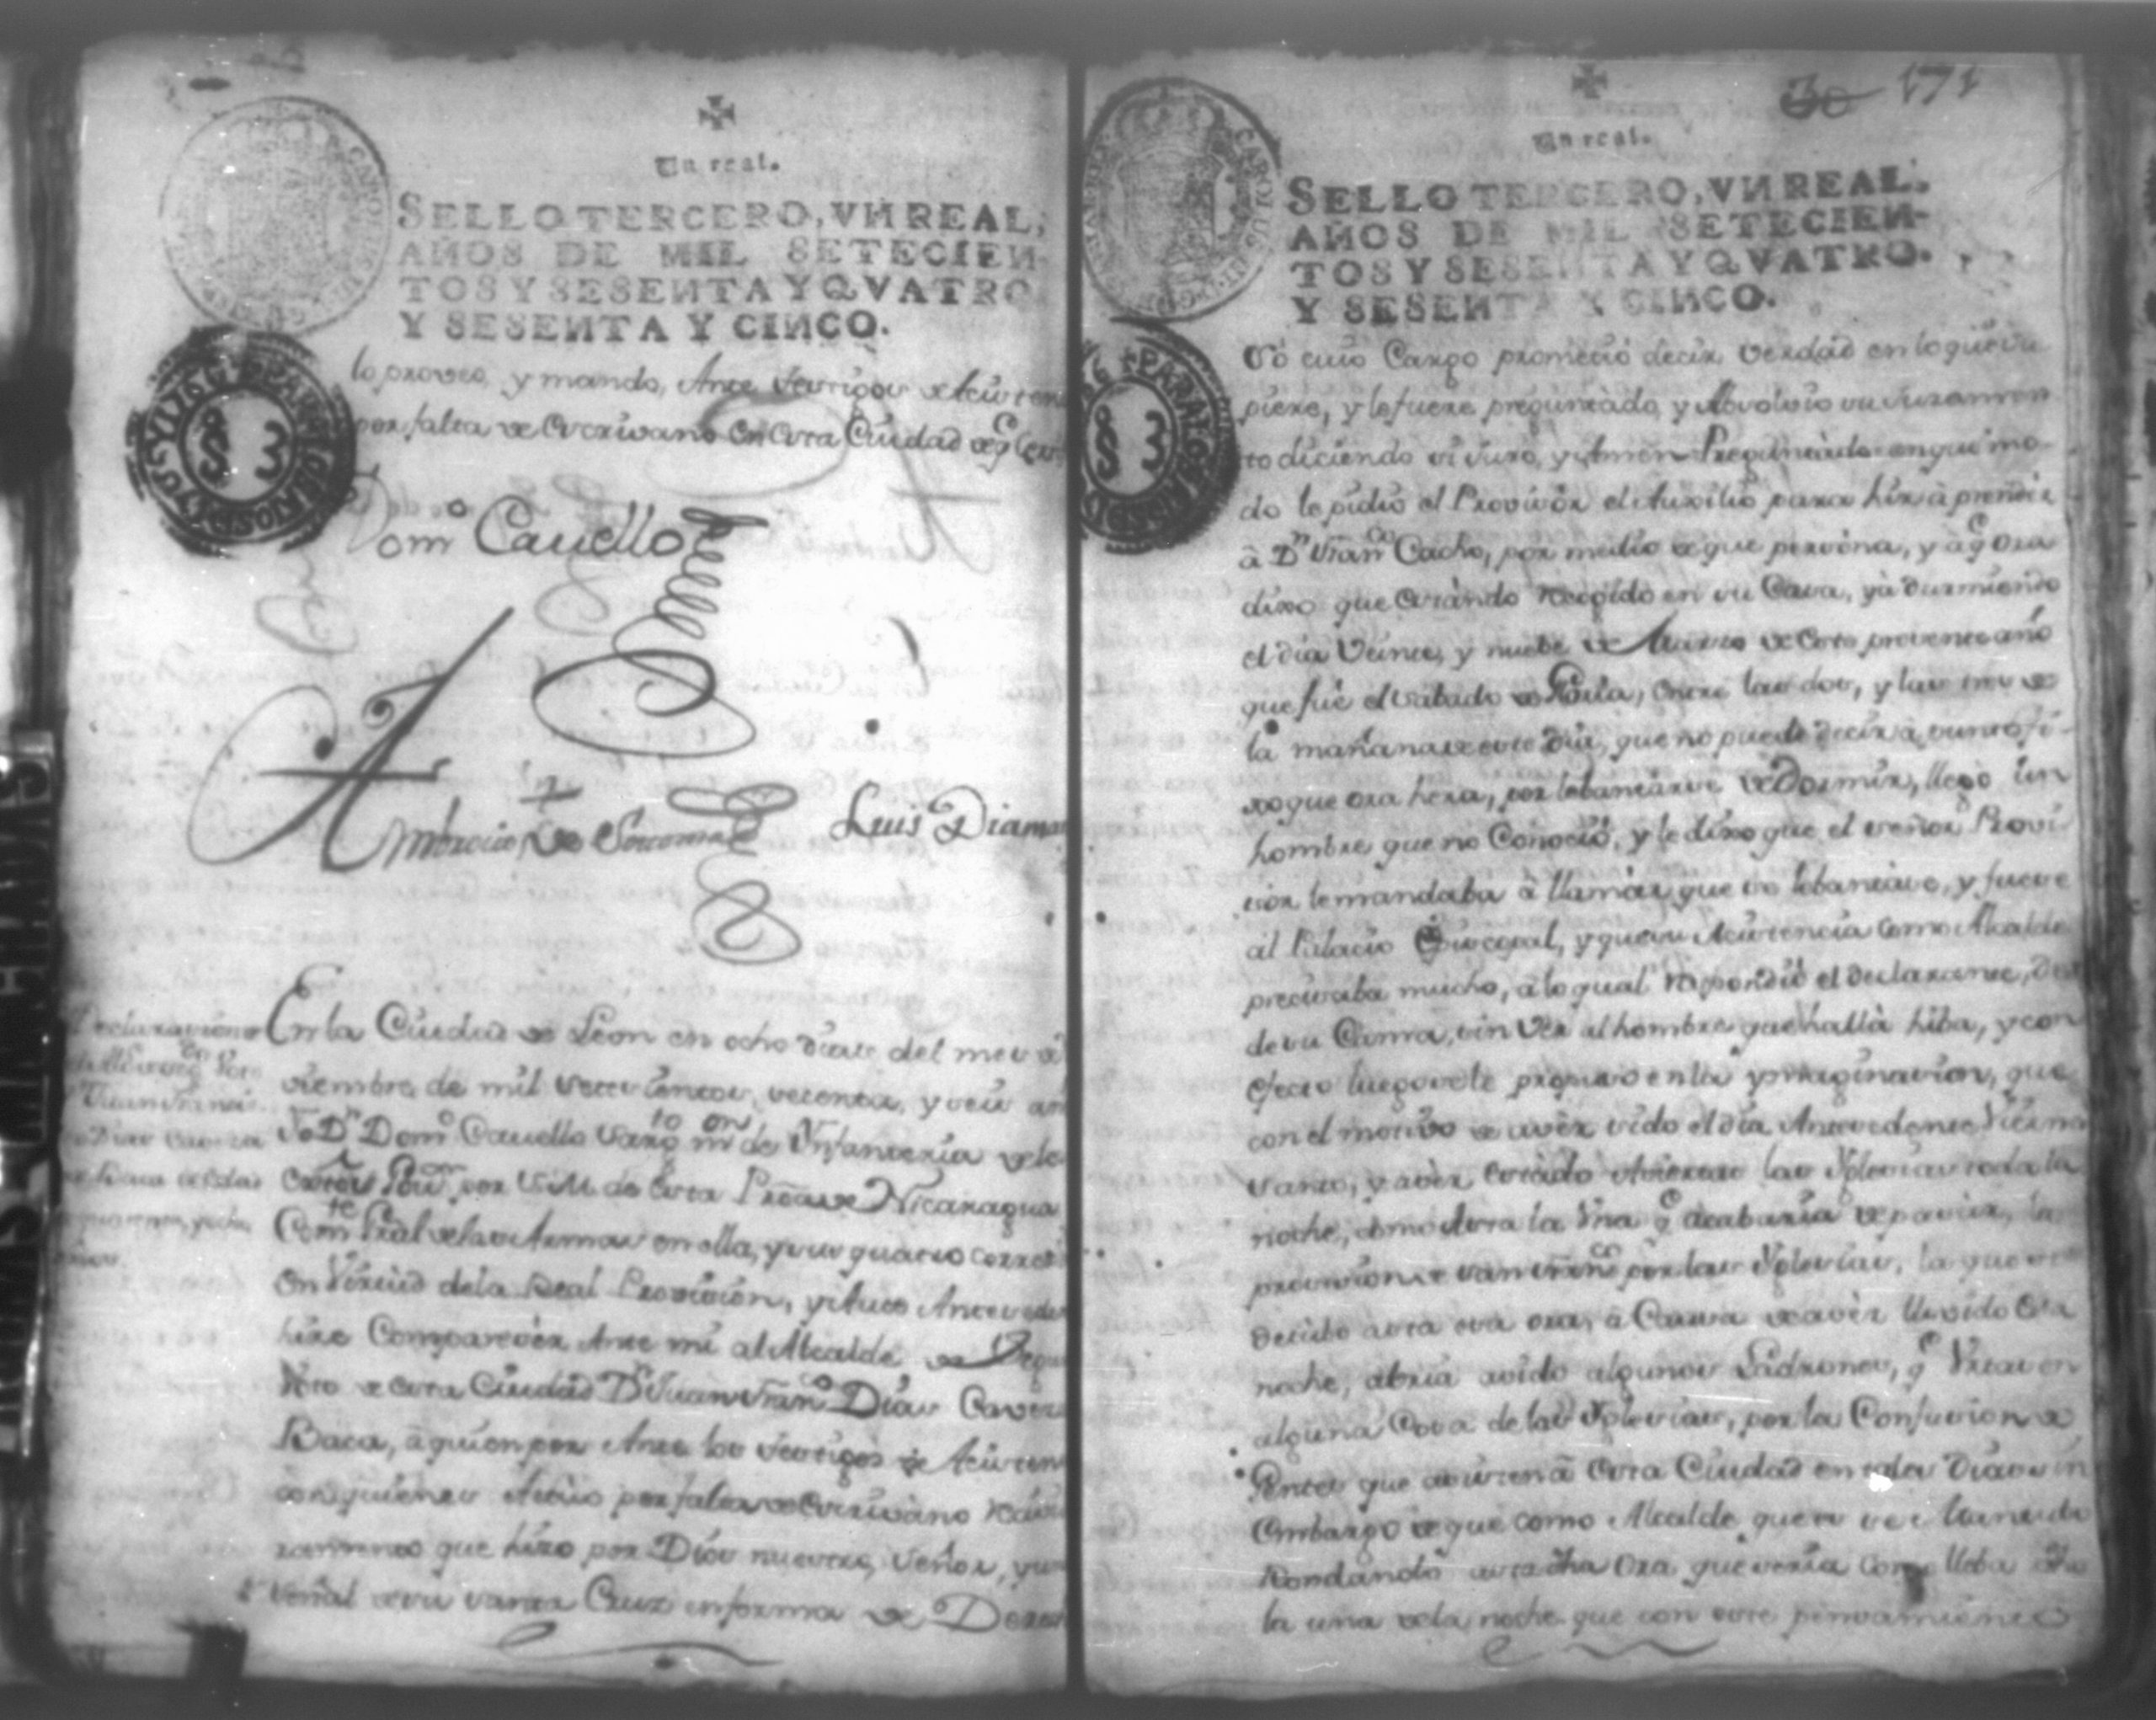 Un real.
SELLO TERCERO, VN REAL,
AÑOS DE MIL SETECIEN
TOS Y SESENTA Y QVATRO
Y SESENTA Y CINCO.
3
lo proveo, y mando, Ante testigos de Asisten
por falta de Escrivano en esta Ciudad de
Domº Cauello
Ambrocio de
Luis Diama
Declaracion
Juan Fran
En la Ciudad de Leon en ocho dias del mes de
viembre de mil setecientos, sesenta, y seis añ
Yo Dn Domº Cauello Sargto mor de Ynfanteria de le
por S.M. de esta Proa de Nicaragua
Comte Gral de las Armas en ella, y sus quatro
en Virtud de la Real Provision, y Auto Antecede
hize Comparecer Ante mi al Alcalde de Segu
Voto de esta Ciudad Dn Juan Franco Dias Cavez
Baca, a quien por Ante los testigos de Asisten
con quienes Actuo por falta de Escrivano
ramento que hizo por Dios nuestro, Señor, y
señal de su santa Cruz en forma de Derec
171
Un real.
SELLO TERCERO, VN REAL,
AÑOS DE MIL SETECIEN-
TOS Y SESENTA Y QVATRO.
Y SESENTA Y CINCO.
3
so cuio Cargo prometió decir verdad en lo que su
piere, y le fuere preguntado, y Absolvio su Juramen
to diciendo si Juro, y Amen Preguntado en que mo
do le pidio el Provisor el Auxilio para hir à prender
à Dn Franco Cacho, por medio de que persona, y à q Ora
dixo que estando recojido en su Casa, ya durmiendo
el dia Veinte, y nuebe de Marzo de este presente año
que fue el sabado de Gloria, entre las dos, y las tres de
la mañana de este Dia, que no puede decir à punto fi
xo que ora hera, por lebantarse de Dormir, llego un
hombre que no Conosió, y le dixo que el señor Provi
sor le mandaba à llamar que se lebantase, y fuese
al Palacio Episcopal, y que su Asistencia como Alcalde
precisaba mucho, à lo qual respondió el declarante, des
de su Cama, sin Ver al hombre que halla hiba, y con
efecto luego se le propuso en la ymaginasion, que
con el motivo de aver sido el dia Antecedente Viernes
santo, y aver estado Aviertas las Yglesias toda la
noche, como asta la Una q acabaria de pasar, la
prosesion de san por las Yglesias, la que se
asta esa ora, à Causa de aver llovido esa
noche, abria avido algunos Ladrones, q
alguna Cosa de las Yglesias, por la Confusion de
Gentes que asisten à esta Ciudad en tales Dias sin
Embargo de que como Alcalde que
Rondando asta dha Ora que seria como lleba dho
la una de la noche que con este pensamiento